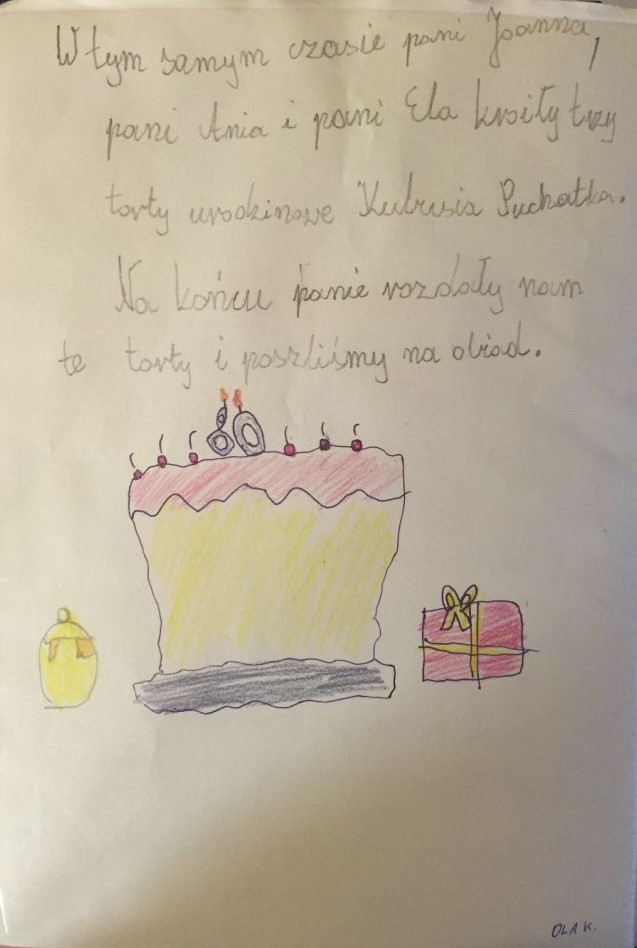 W tym samym czasie pani Joanna,
pani Ania i pani Ela kroiły trzy
torty urodzinowe Kubusia Puchatka.
Na końcu panie rozdały nam
te torty i poszliśmy na obiad.
80
OLA K.